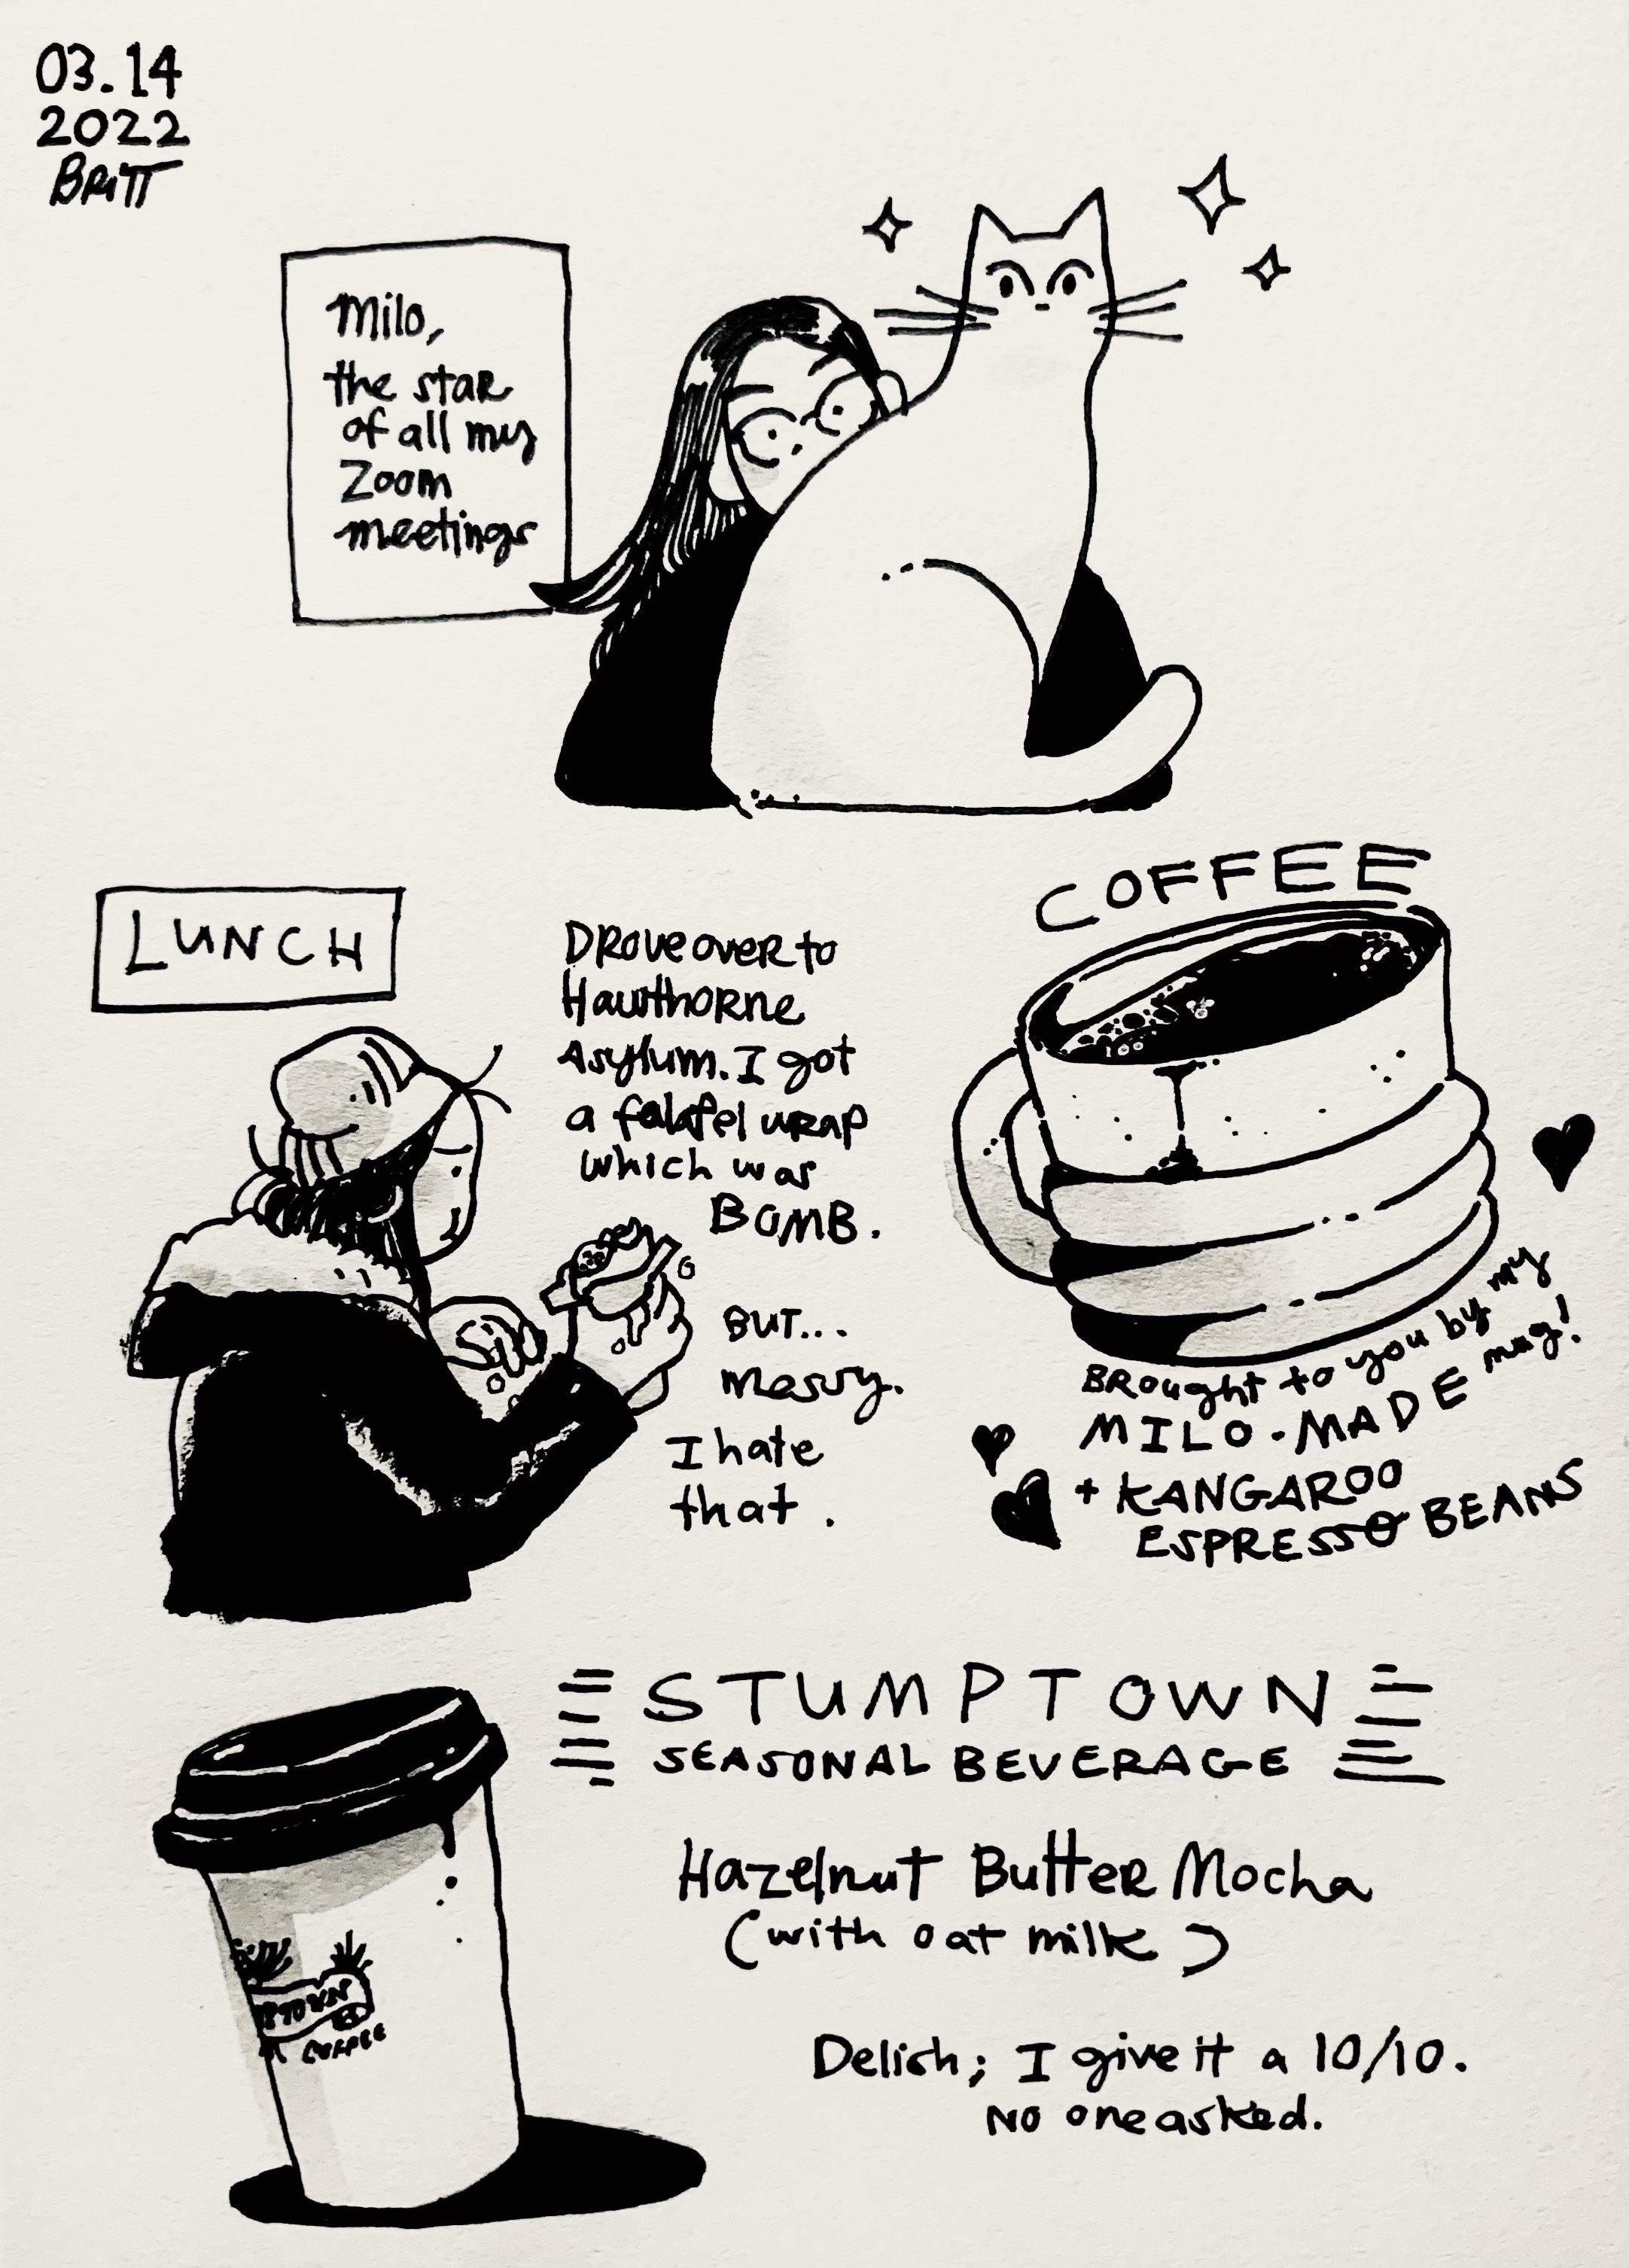 03.14
2022
BRITT
Milo,
the star
of all my
Zoom
meetings
LUNCH
Drove over to
Hawthorne
Asylum. I got
a falafel wrap
which was
BOMB.
BUT...
messy.
I hate
that.
COFFEE
Brought to you by my
MILO-MADE mug!
+ KANGAROO
ESPRESSO BEANS
STUMPTOWN
SEASONAL BEVERAGE
Hazelnut Butter Mocha
(with oat milk)
PTOWN
COFFEE
Delish; I give it a 10/10.
No one asked.